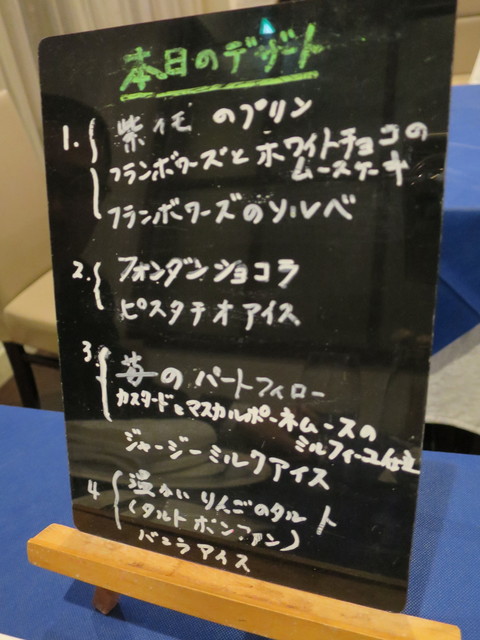 本日のデザート
1. 紫イモ のプリン
フランボワーズと ホワイトチョコの
ムースケーキ
フランボワーズのソルベ
2. フォンダンショコラ
ピスタチオアイス
3. 苺の パートフィロー
カスタードとマスカルポーネムースの
ミルフィーユ仕立
ジャージーミルクアイス
4 温かい りんごのタルト
(タルト ボンファン)
バニラアイス